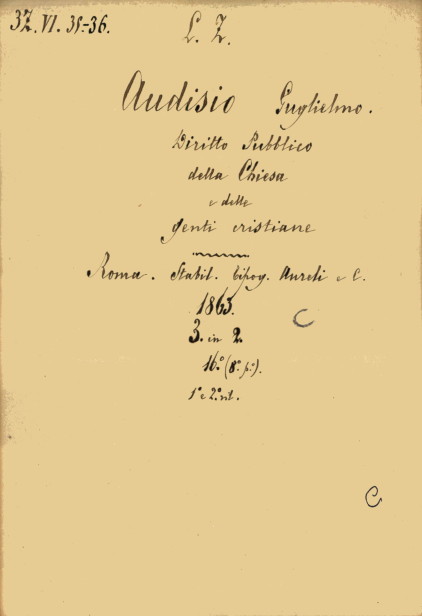 37.VI.35-36.
L. Z.
Audisio Guglielmo.
Diritto Pubblico
della Chiesa
e delle
genti cristiane
Roma. Stabil. tipog. Aureli e C.
1863.
3. in 2.
16.° (8.° p.°).
1° e 2° vol.
C
C